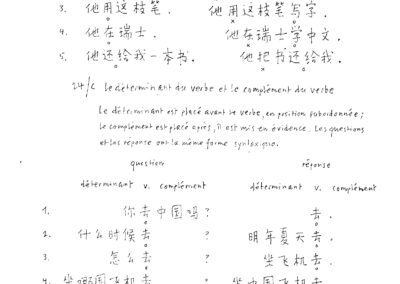 3. 他用这枝笔. 他用这枝笔写字.
4. 他在瑞士. 他在瑞士学中文.
5. 他还给我一本书. 他把书还给我.
24/c Le déterminant du verbe et le complément du verbe
Le déterminant est placé avant le verbe, en position subordonnée;
le complément est placé après, il est mis en évidence. Les questions
et les réponse ont la même forme syntaxique.
question réponse
déterminant v. complément déterminant v. complément
1. 你去中国吗? 去.
2. 什么时候去? 明年夏天去.
3. 怎么去? 坐飞机去.
4. 坐哪国飞机去 坐中国飞机去